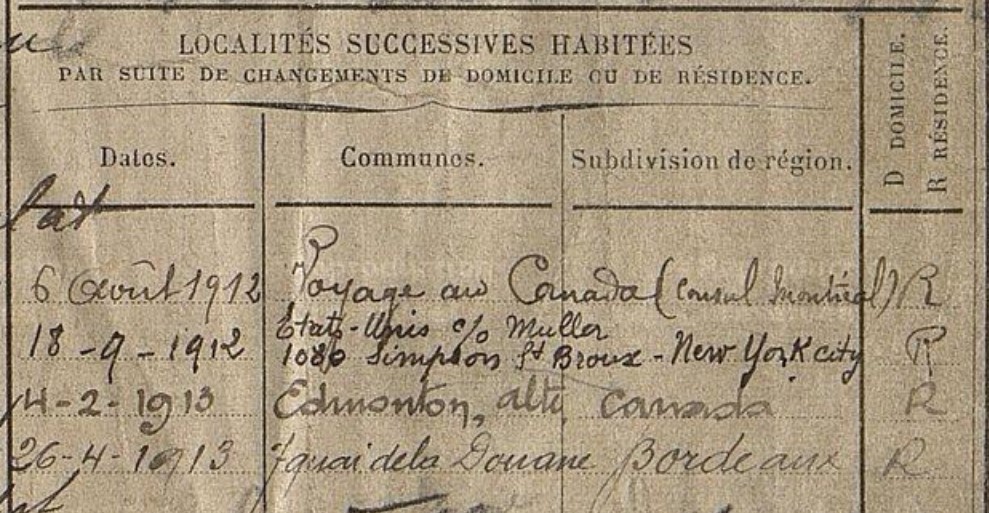 LOCALITÉS SUCCESSIVES HABITÉES
PAR SUITE DE CHANGEMENTS DE DOMICILE OU DE RÉSIDENCE.
D DOMICILE.
R RÉSIDENCE.
Dates. Communes. Subdivision de région.
6 Août 1912 Voyage au Canada (Consul Montréal) R
18-9-1912 États-Unis c/o Muller
1080 Simpson St Broux - New York city R
14-2-1913 Edmonton, alta Canada R
26-4-1913 7 quai de la Douane Bordeaux R